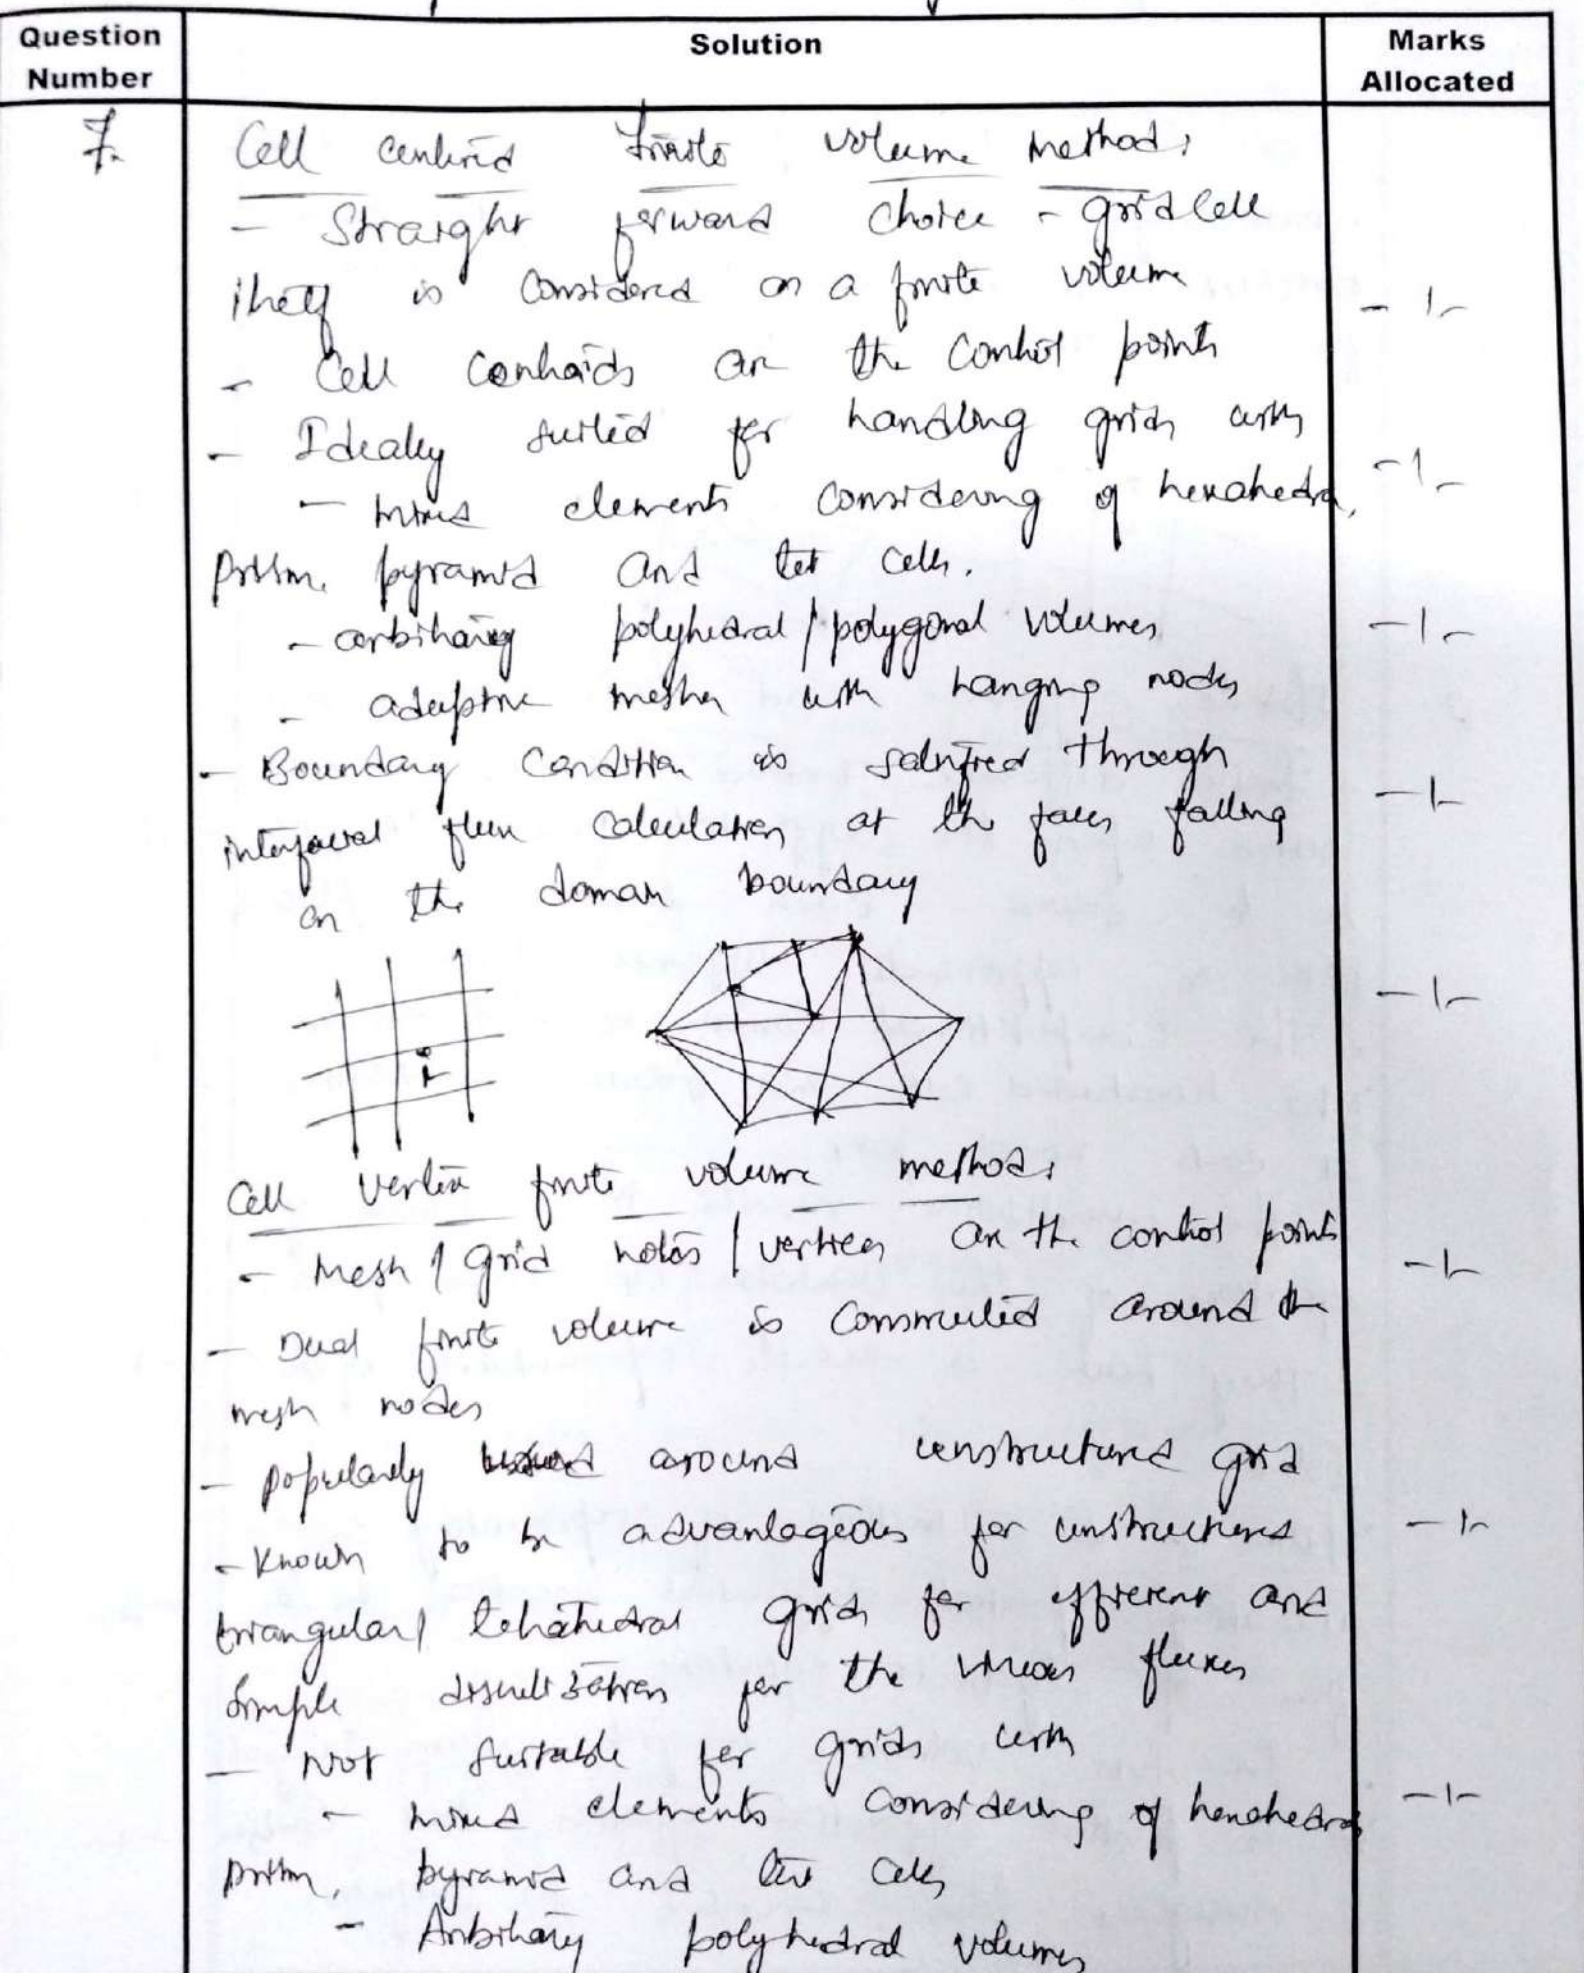 Question Number
Solution
Marks Allocated
7.
Cell centred finite volume method:
- Straight forward choice - grid cell
itself is considered as a finite volume
- 1 -
- Cell centroids are the control points
- Ideally suited for handling grids with
- 1 -
- mixed elements considering of hexahedra,
prism, pyramid and tet cells.
- arbitrary polyhedral / polygonal volumes
- 1 -
- adaptive meshes with hanging nodes
- Boundary condition is satisfied through
- 1 -
interfacial flux calculation at the faces falling
on the domain boundary
- 1 -
Cell vertex finite volume method:
- Mesh / grid nodes / vertices are the control points
- 1 -
- Dual finite volume is constructed around the
mesh nodes
- popularly around unstructured grid
- Known to be advantageous for unstructured
- 1 -
triangular / tetrahedral grids for efficient and
simple discretization for the viscous fluxes
- Not suitable for grids with
- mixed elements considering of hexahedra
- 1 -
prism, pyramid and tet cells
- Arbitrary polyhedral volumes